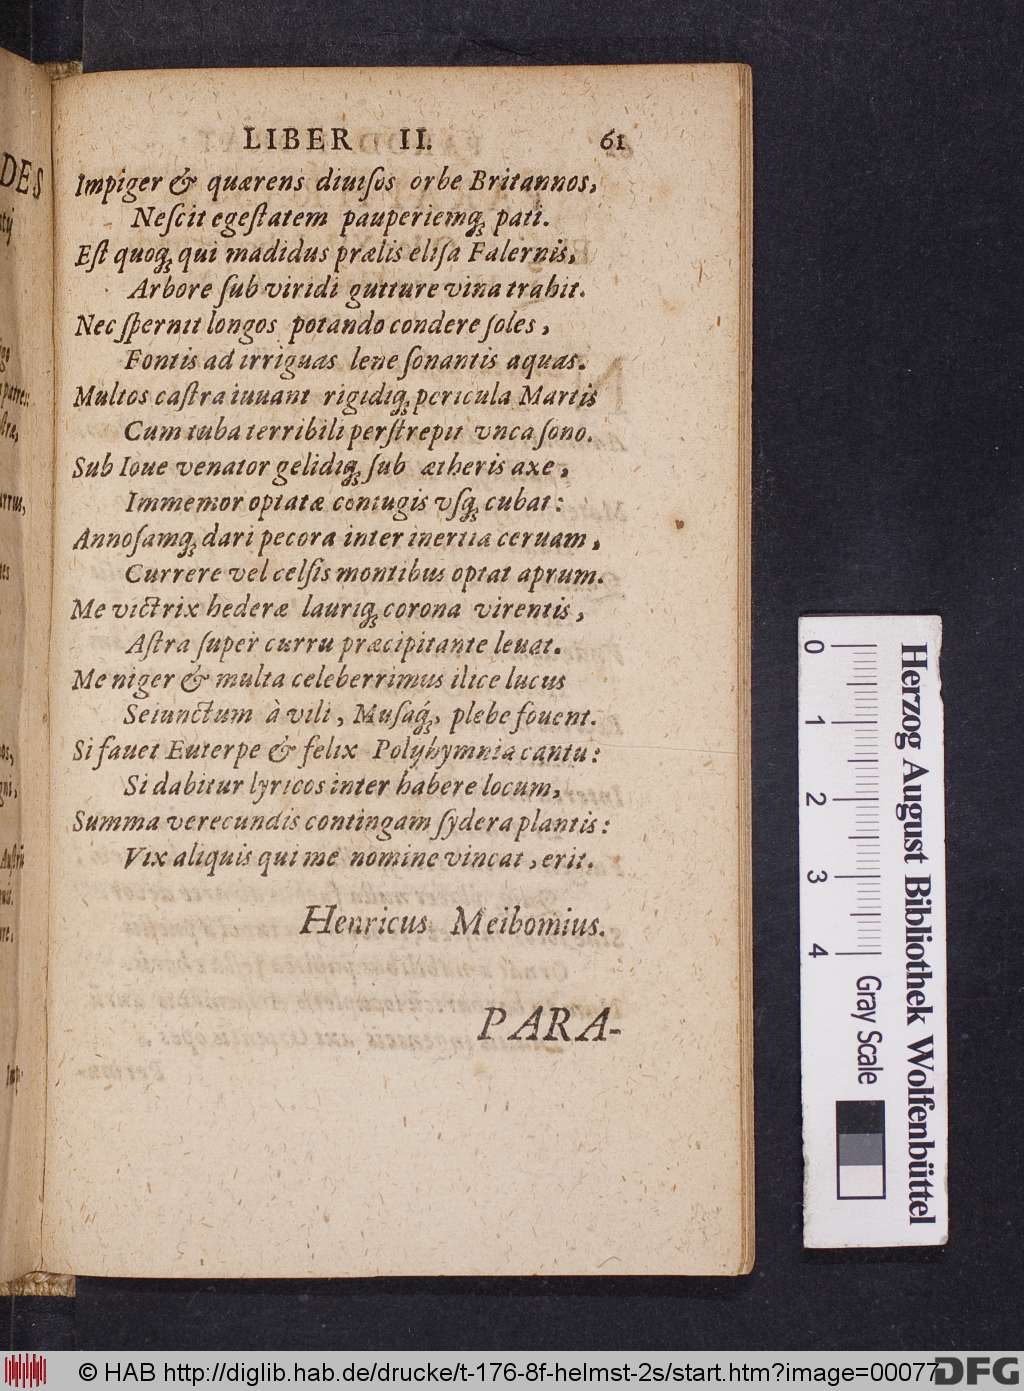 LIBER II. 61
Impiger & quærens diuiſos orbe Britannos,
Neſcit egeſtatem pauperiemq́; pati.
Eſt quoq; qui madidus prælis eliſa Falernis,
Arbore ſub viridi gutture vina trahit.
Nec ſpernit longos potando condere ſoles,
Fontis ad irriguas lene ſonantis aquas.
Multos caſtra iuuant rigidiq; pericula Martis
Cum tuba terribili perſtrepit vnca ſono.
Sub Ioue venator gelidiq; ſub ætheris axe,
Immemor optatæ coniugis vſq; cubat:
Annoſamq; dari pecora inter inertia ceruam,
Currere vel celſis montibus optat aprum.
Me victrix hederæ lauriq; corona virentis,
Aſtra ſuper curru præcipitante leuat.
Me niger & multa celeberrimus ilice lucus
Seiunctum à vili, Muſaq́;, plebe fouent.
Si fauet Euterpe & felix Polyhymnia cantu:
Si dabitur lyricos inter habere locum,
Summa verecundis contingam ſydera plantis:
Vix aliquis qui me nomine vincat, erit.
Henricus Meibomius.
PARA-
DES
Herzog August Bibliothek Wolfenbüttel
0 1 2 3 4 Gray Scale
© HAB http://diglib.hab.de/drucke/t-176-8f-helmst-2s/start.htm?image=00077
DFG